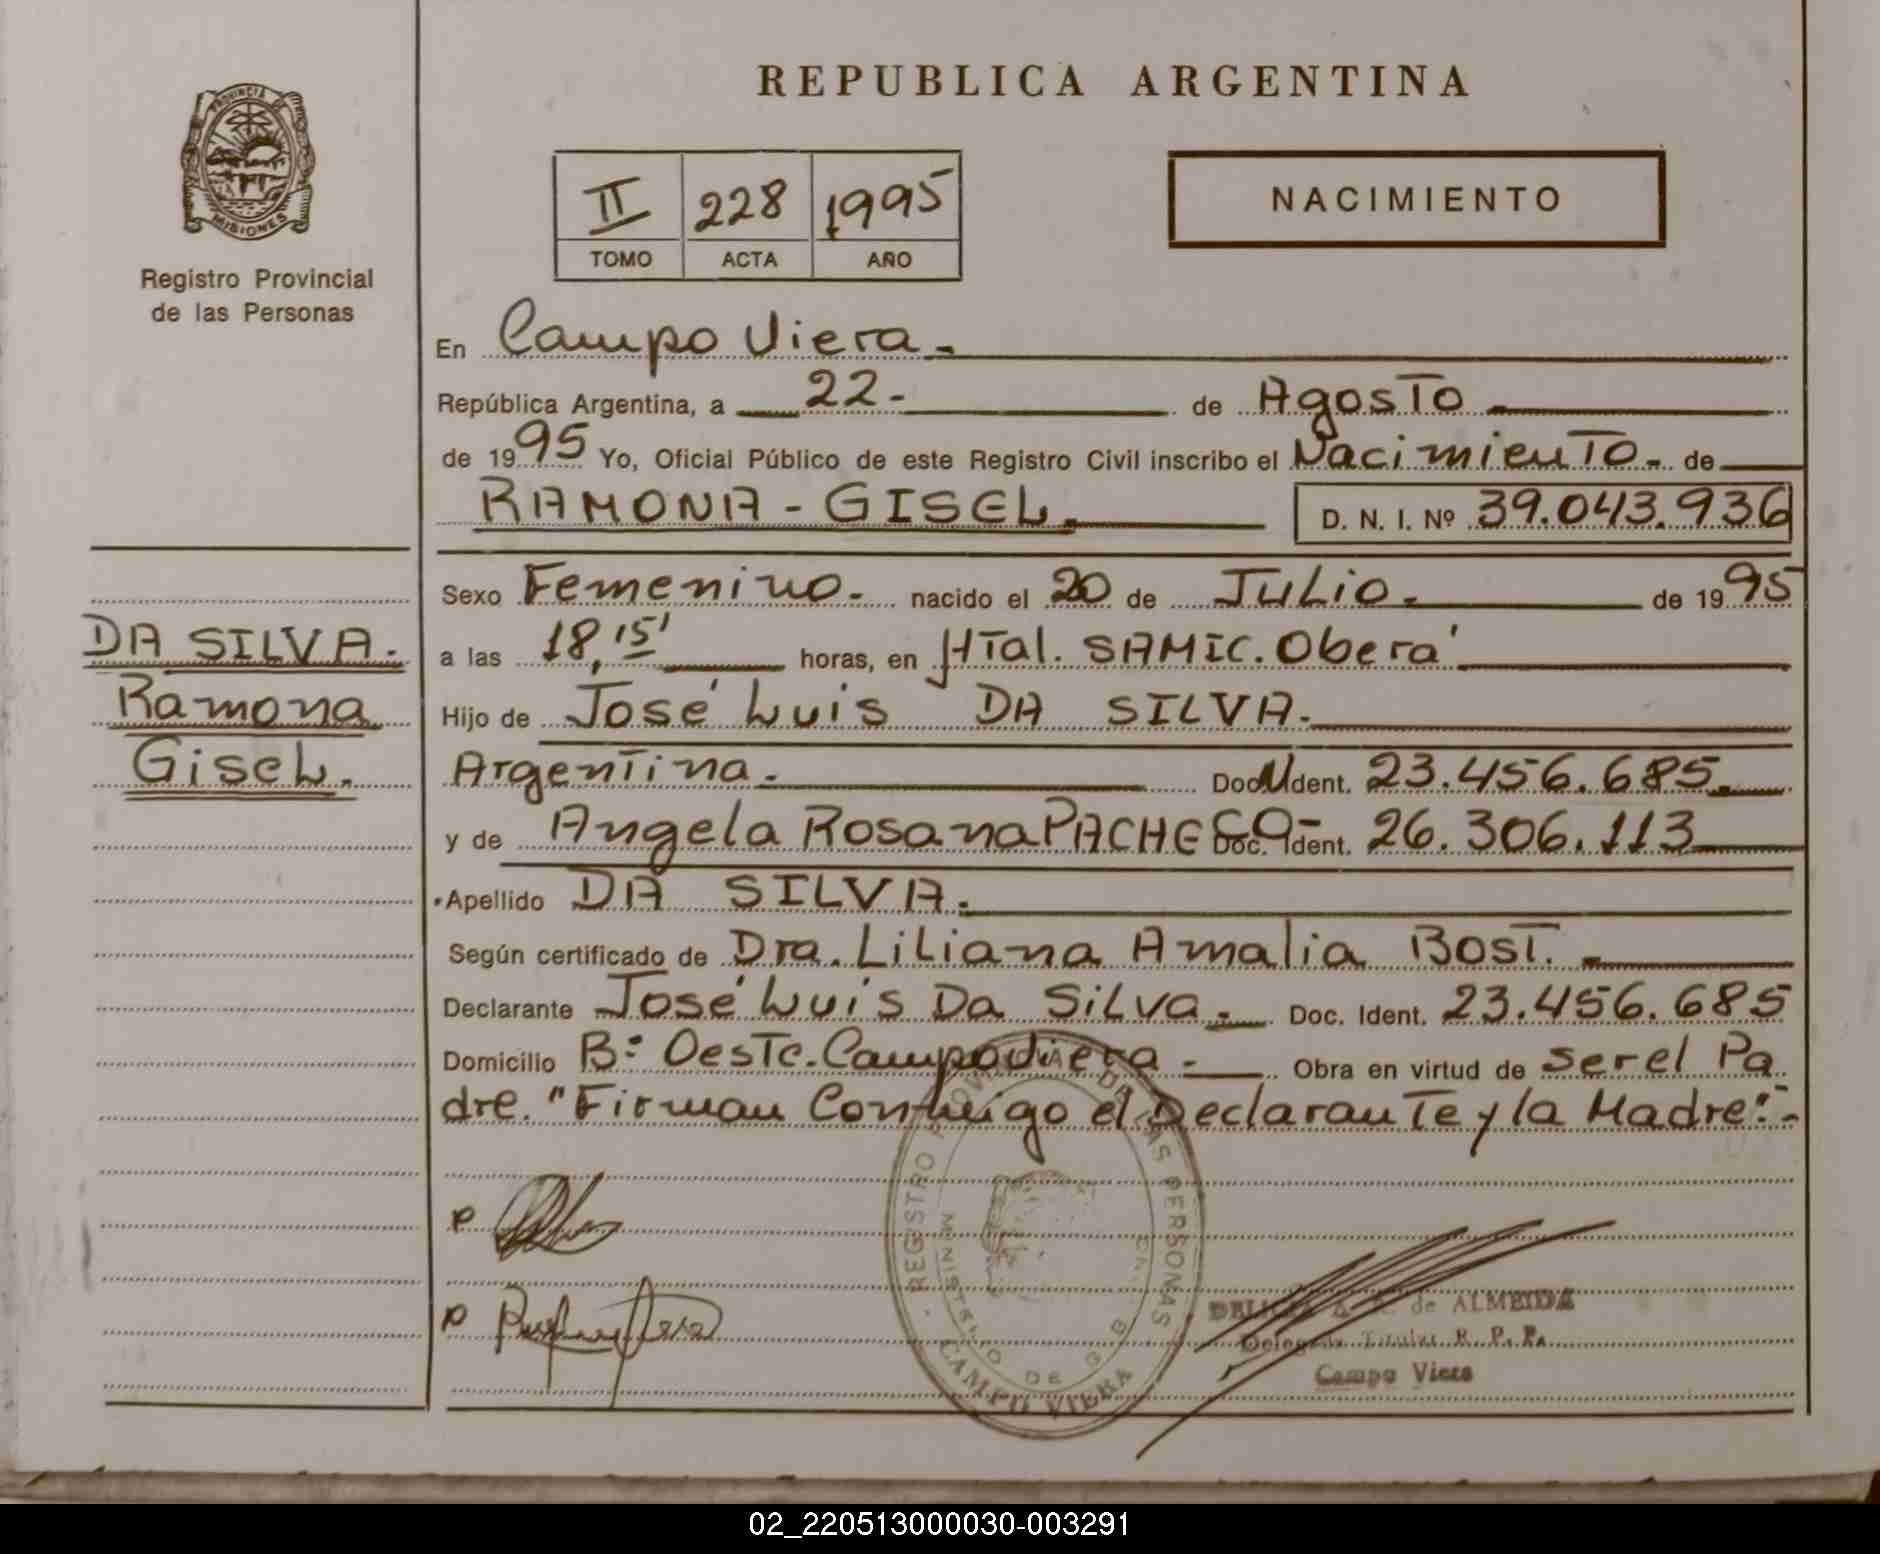 REPUBLICA ARGENTINA
PROVINCIA DE
MISIONES
Registro Provincial
de las Personas
II 228 1995
TOMO ACTA AÑO
NACIMIENTO
En Campo Viera.-
República Argentina, a 22.- de Agosto.-
de 1995 Yo, Oficial Público de este Registro Civil inscribo el Nacimiento.- de
RAMONA - GISEL.- D. N. I. Nº 39.043.936
Sexo Femenino.- nacido el 20 de Julio.- de 1995
a las 18,15' horas, en Htal. SAMIC. Oberá
Hijo de José Luis DA SILVA.-
Argentina.- Doc. Ident. 23.456.685.-
y de Angela Rosana PACHECO- Doc. Ident. 26.306.113
Apellido DA SILVA.-
Según certificado de Dra. Liliana Amalia Bost.-
Declarante José Luis Da Silva.- Doc. Ident. 23.456.685
Domicilio B: Oeste. Campo Viera.- Obra en virtud de ser el Pa
dre. "Firman Conmigo el Declarante y la Madre:-
DA SILVA.
Ramona
Gisel.
REGISTRO PROVINCIAL DE LAS PERSONAS
MINISTERIO DE GOB
CAMPO VIERA
DELICIA de ALMEIDA
Delegada Titular R. P. P.
Campo Viera
02_220513000030-003291